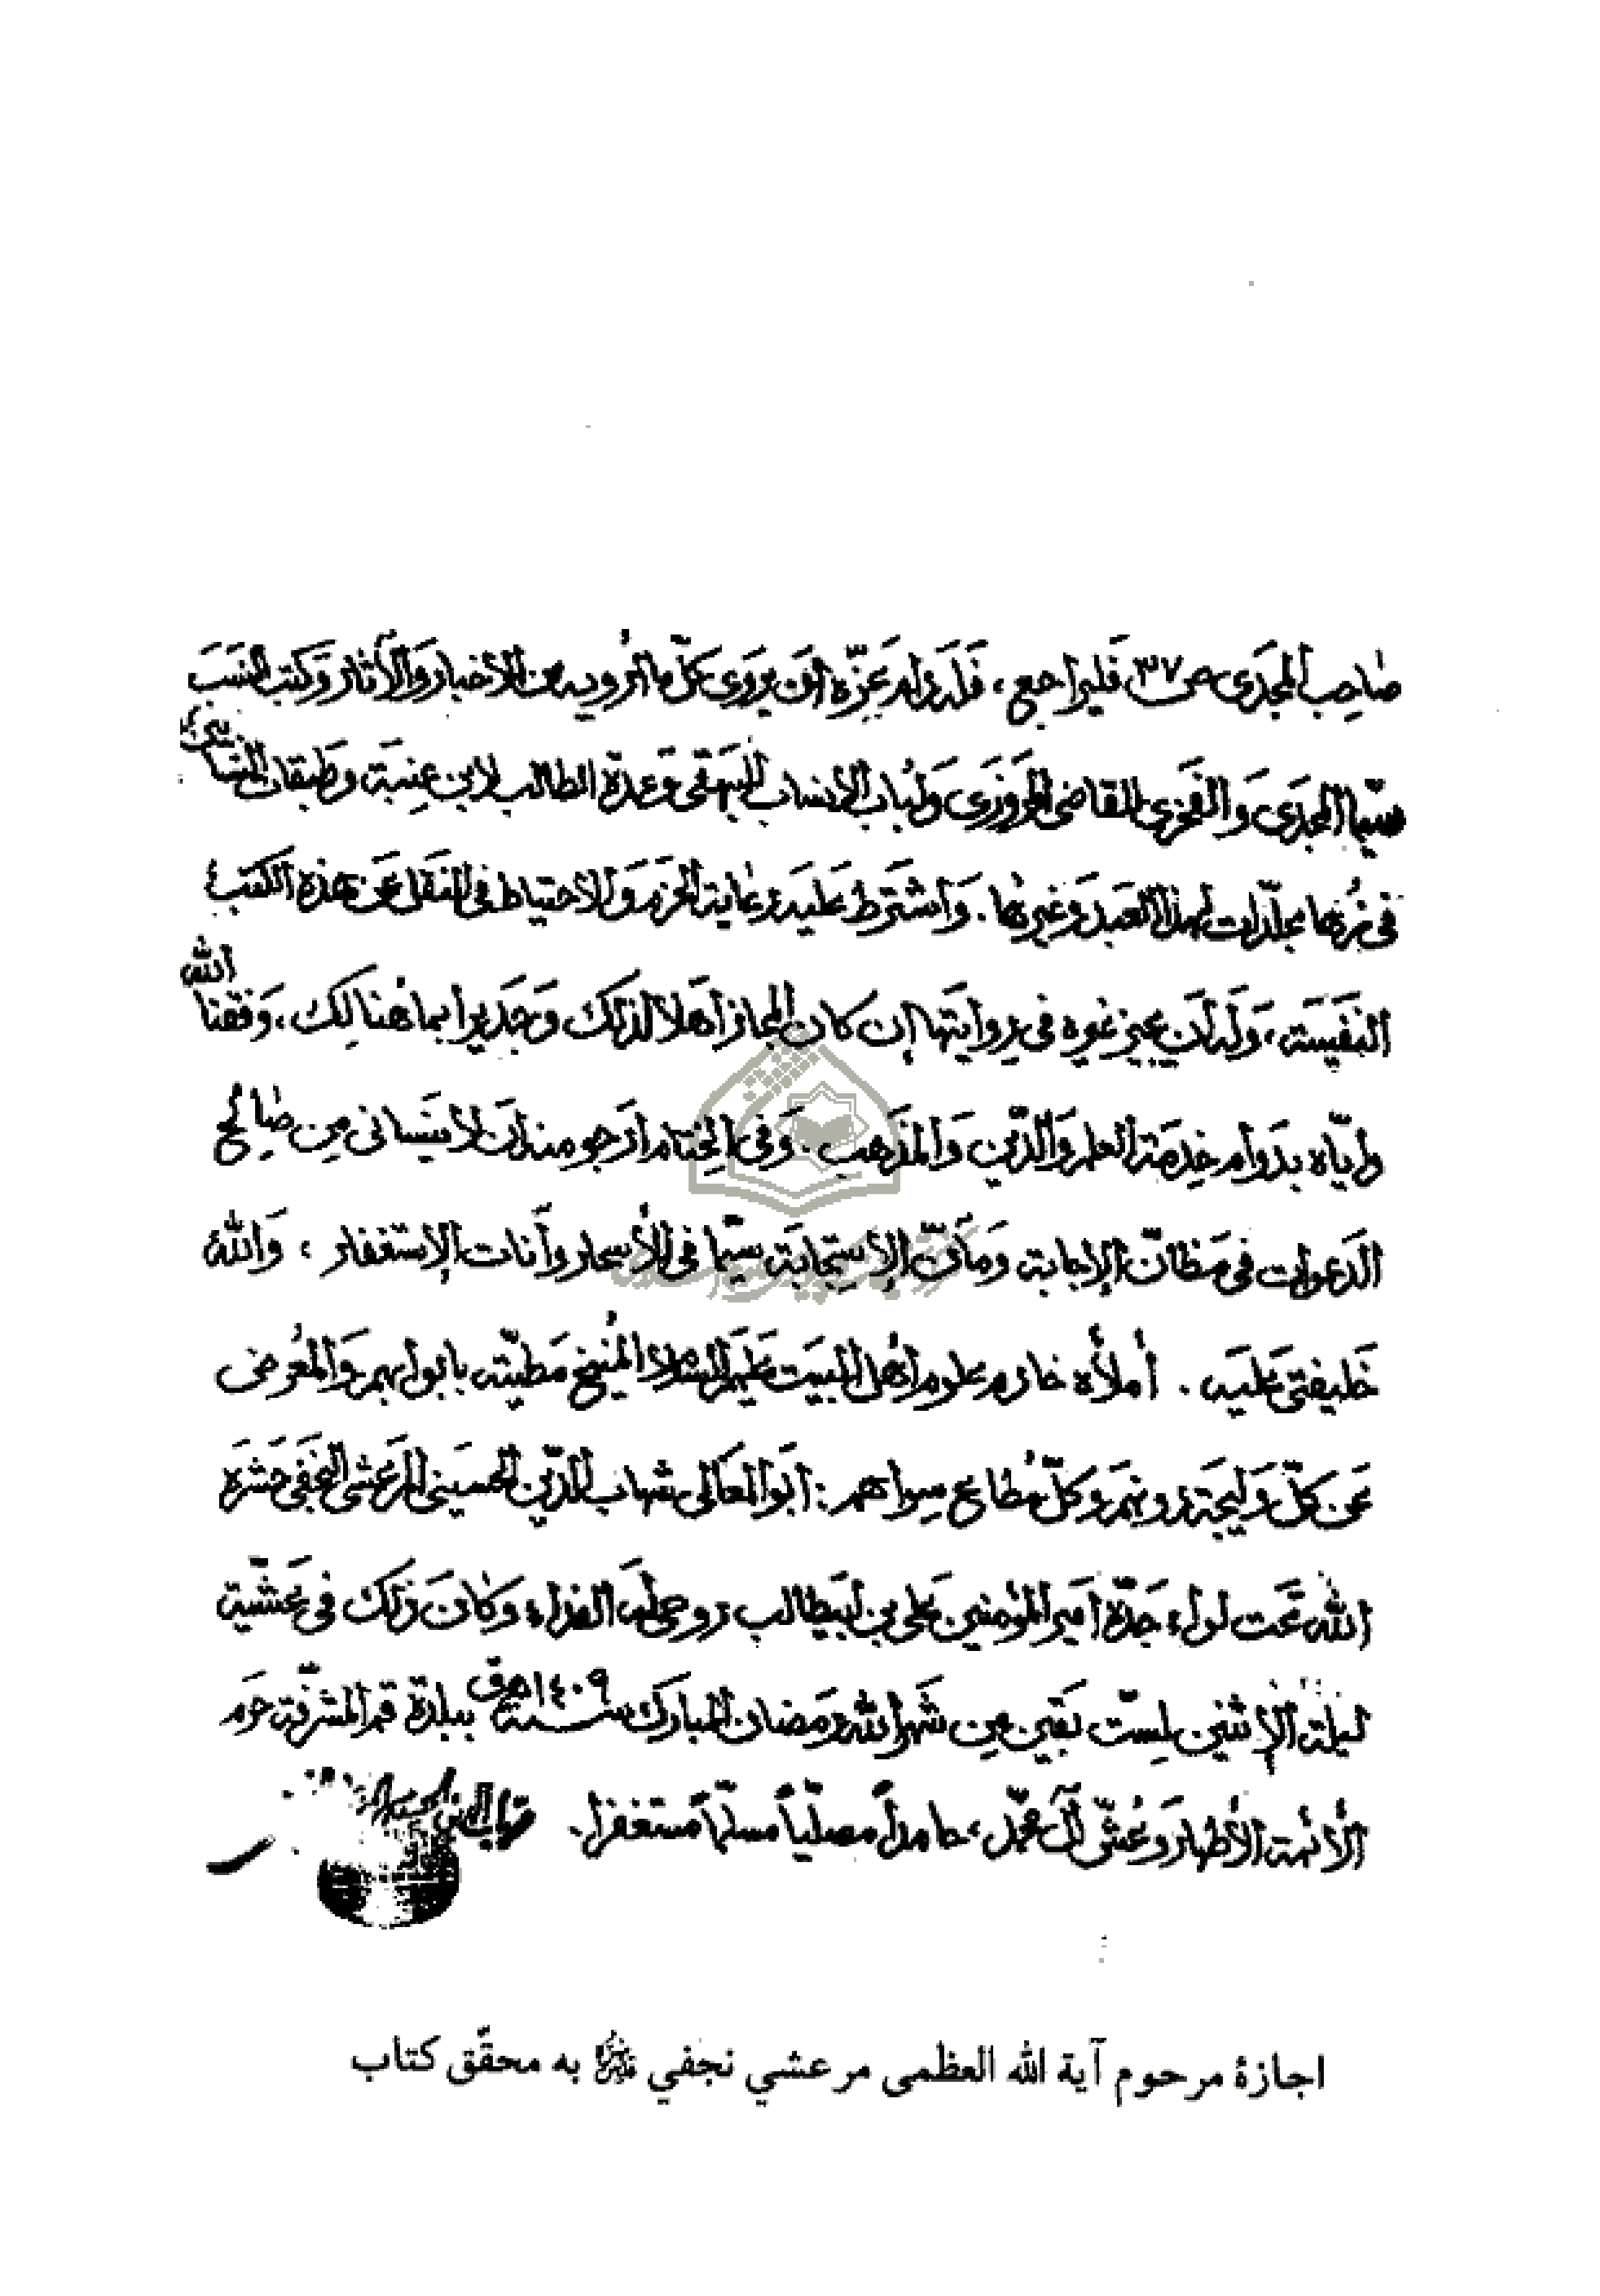 صَاحِب المجدَی ص ٣٧ فَليراجع ، فَلَه دَامَ عَزّه أن يروَی كلّ ما أرويه من الأخبار وَالآثار وَكتب النسَب
سيّما المجدَی وَالفَخری للقاضی المروَزَی وَلُباب الأنساب للبيهَقی وَعمدة الطالب لابن عِنبَة وَطبقات النسّابين
فی نُزُها مجلّدات لهذا العَبد وَغيرها . وَأشتَرط عَليه رعاية الحَزم وَالاحتياط فی النقل عَن هذه الكتب
النفيسَة ، وَله أن يجيز غيره فی روايتها إن كان المجاز أهلا لذلك وَجَديرا بما هُنالك ، وَفّقنا الله
وإيّاه بدَوام خِدمَة العلم وَالدّين وَالمذهَب . وَفی الخِتام أرجو منه أن لا ينسَانی مِن صَالح
الدَعوات فی مَظانّ الإجابة وَمآنّ الإستجابَة سيّما فی الأسحار وآنات الإستغفار ، وَاللهُ
خَليفتی عَليه . أملأه خادم علوم أهل البيَت عَليهم السلام المُنيخ مَطيّته بابوابهم وَالمُعرض
عَن كلّ وَليجَة دونهم وَكلّ مُطاع سِواهم : أبو المعَالی شهاب الدّين الحسَينی المرعَشی النجَفی حَشَره
الله تَحت لواء جَدّه أمير المؤمنين عَلی بن أبيطالب روحی له الفداء وَكانَ ذلك فی عَشيّة
ليلة الإثنين لِستّ بَقين مِن شَهر الله رمَضان المبارك سنة ١٤٠٩ هـ ق ببلدة قم المشرّفة حَرم
الأئمة الأطهار وَعُشّ آل محمّد ، حامداً مصلّياً مسلّماً مستغفرا . شهاب الدين الحسينی
اجازۀ مرحوم آية الله العظمى مرعشي نجفي به محقّق كتاب